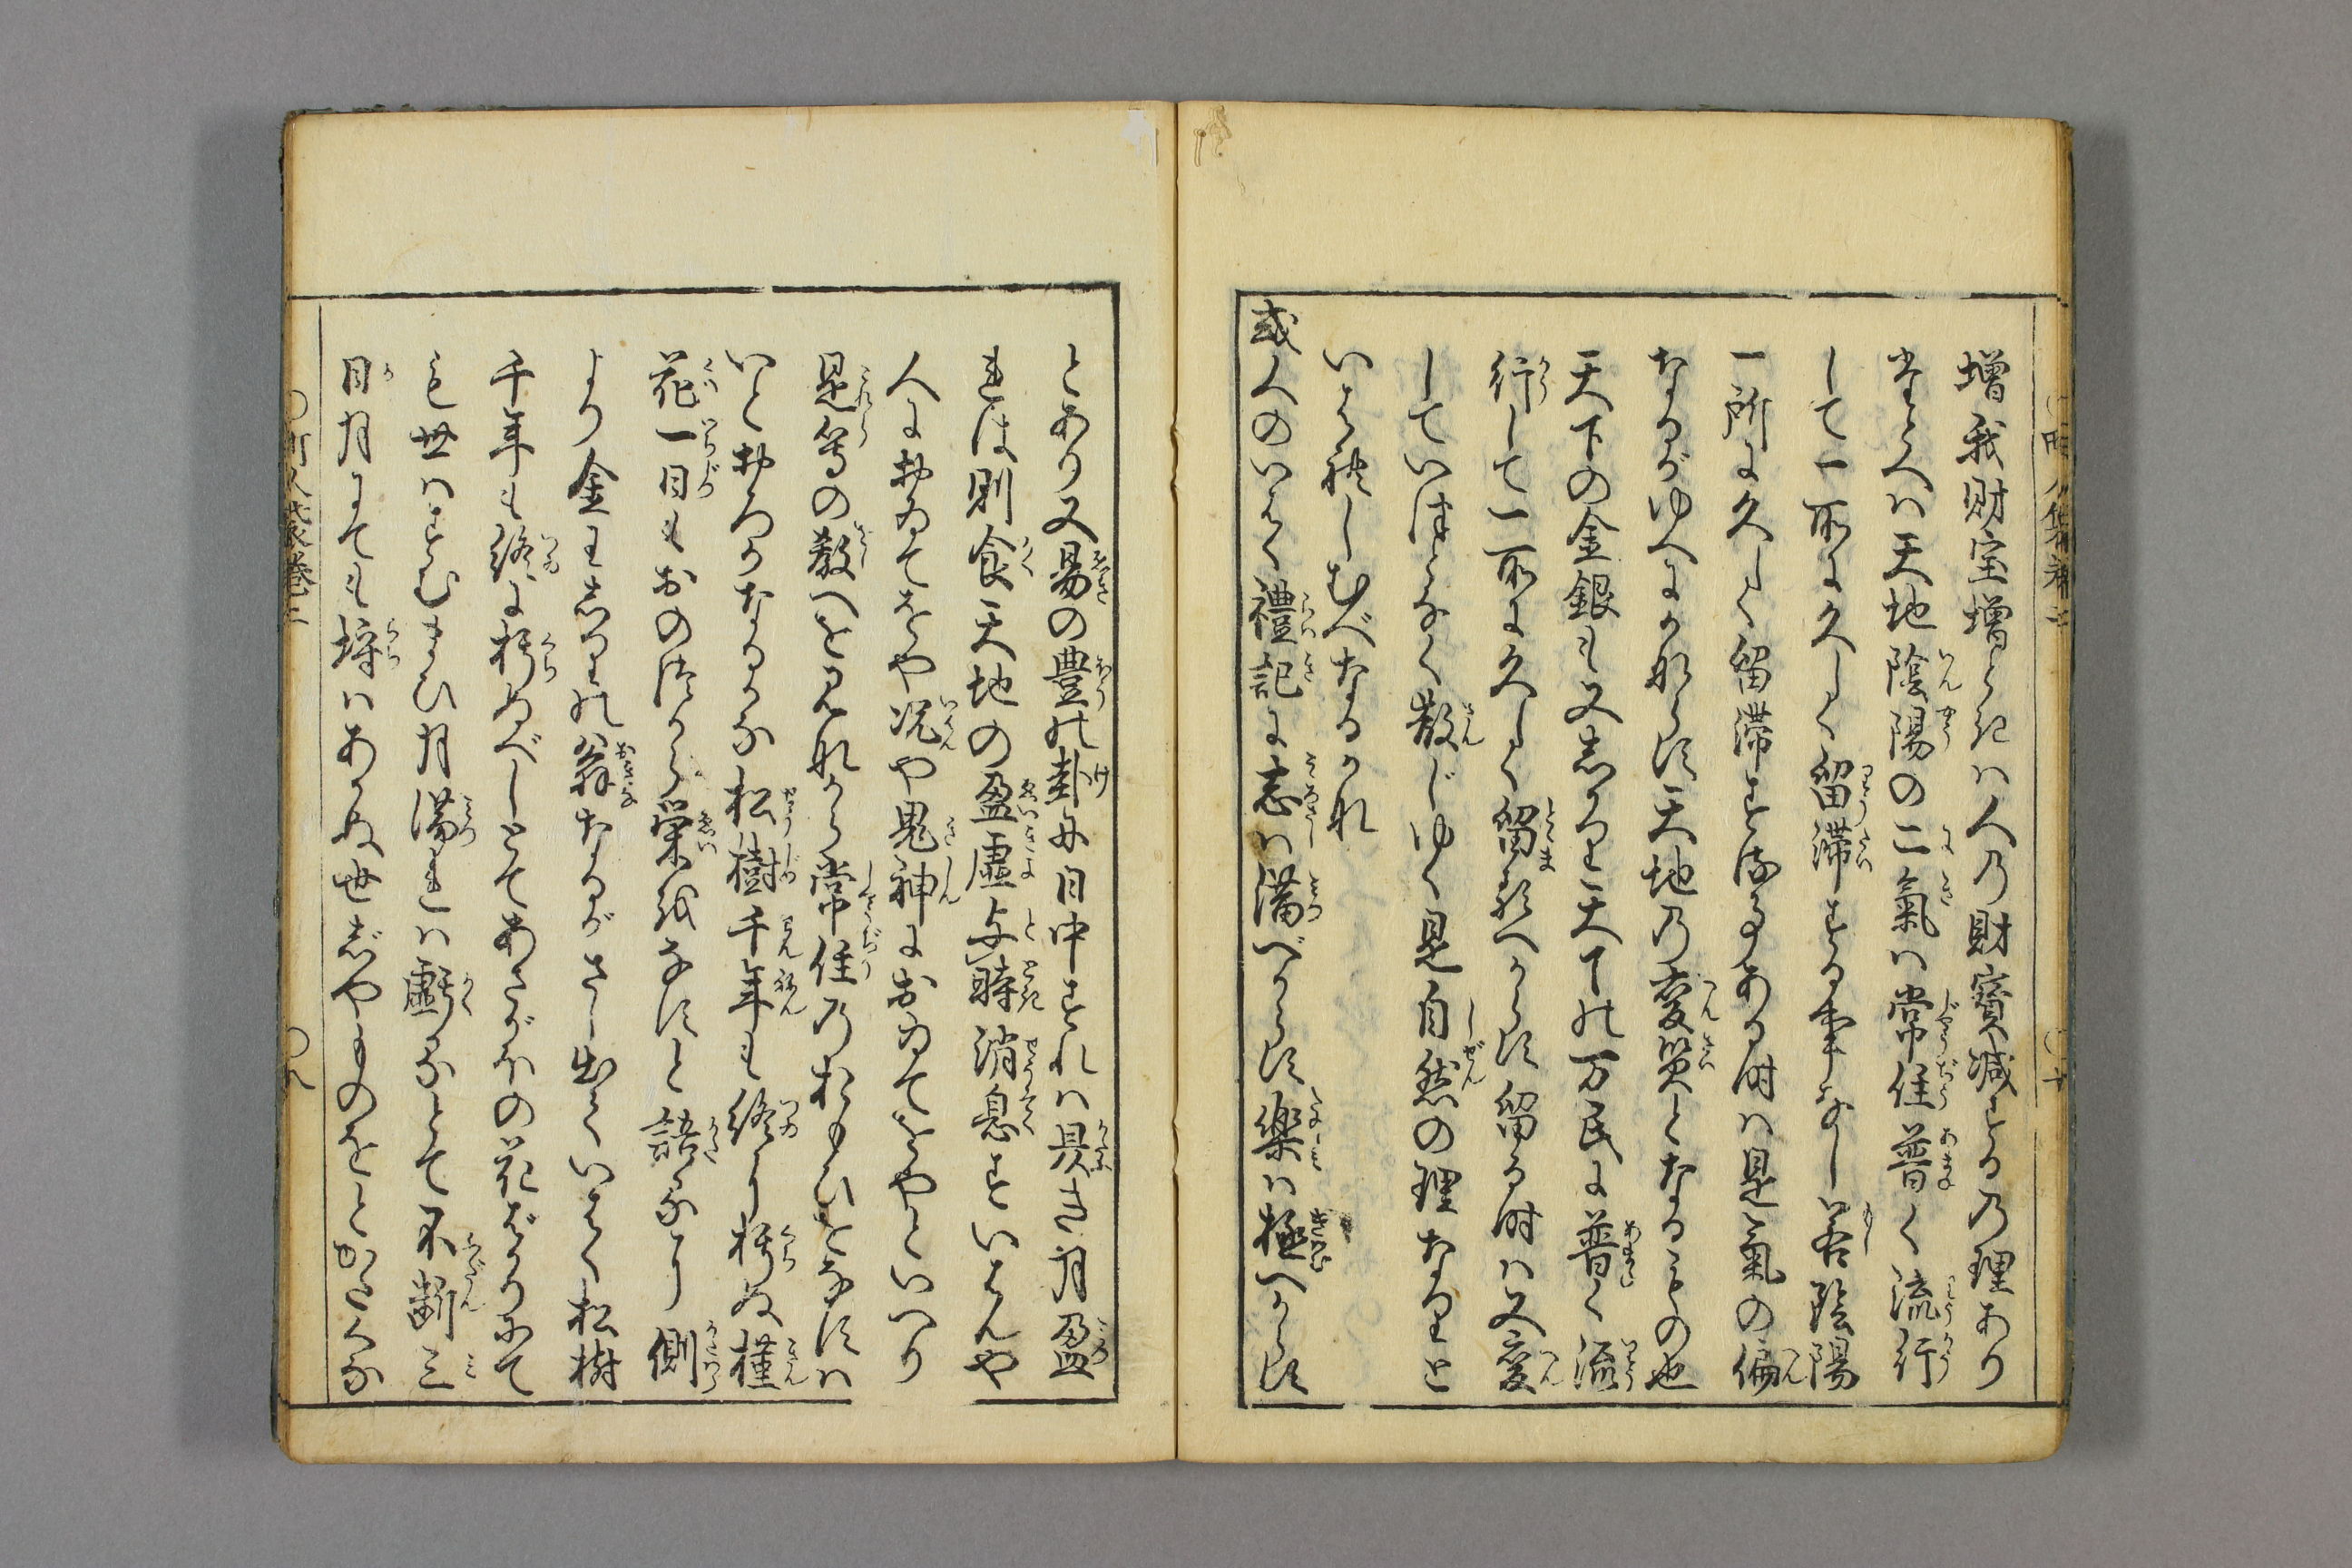 増我財宝増ときは人の財寳減ずるの理あり
たとへは天地陰陽の二氣は常住普く流行
して一所に久しく留滞する事なし若陰陽
一所に久しく留滞する事ある時は是氣の偏
なるがゆへにかならず天地の変災となるもの也
天下の金銀も又しかり天下の万民に普く流
行して一所に久しく留むへからず留る時は又変
していつとなく散じゆく是自然の理なりと
いはれしむべなるかれ
或人のいはく禮記に志は満べからず樂は極へからず
とあり又易の豊の卦に日中すれは昃き月盈
れは則食天地の盈虚与時消息すいはんや
人におゐてをや况や鬼神におゐてをやといへり
是等の教へを見ながら常住のおもひをなすは
いとおろかなるかな松樹千年も終に朽ぬ槿
花一日もおのつから栄をなすと語るに側
より金王しろの翁なるがさし出ていはく松樹
千年も終に朽ぬべしとてあさがほの花ばかりにて
も世はすむまひ月満れは虧るとて不断三
日月にても埒はあかぬ世じやものをとかたくな